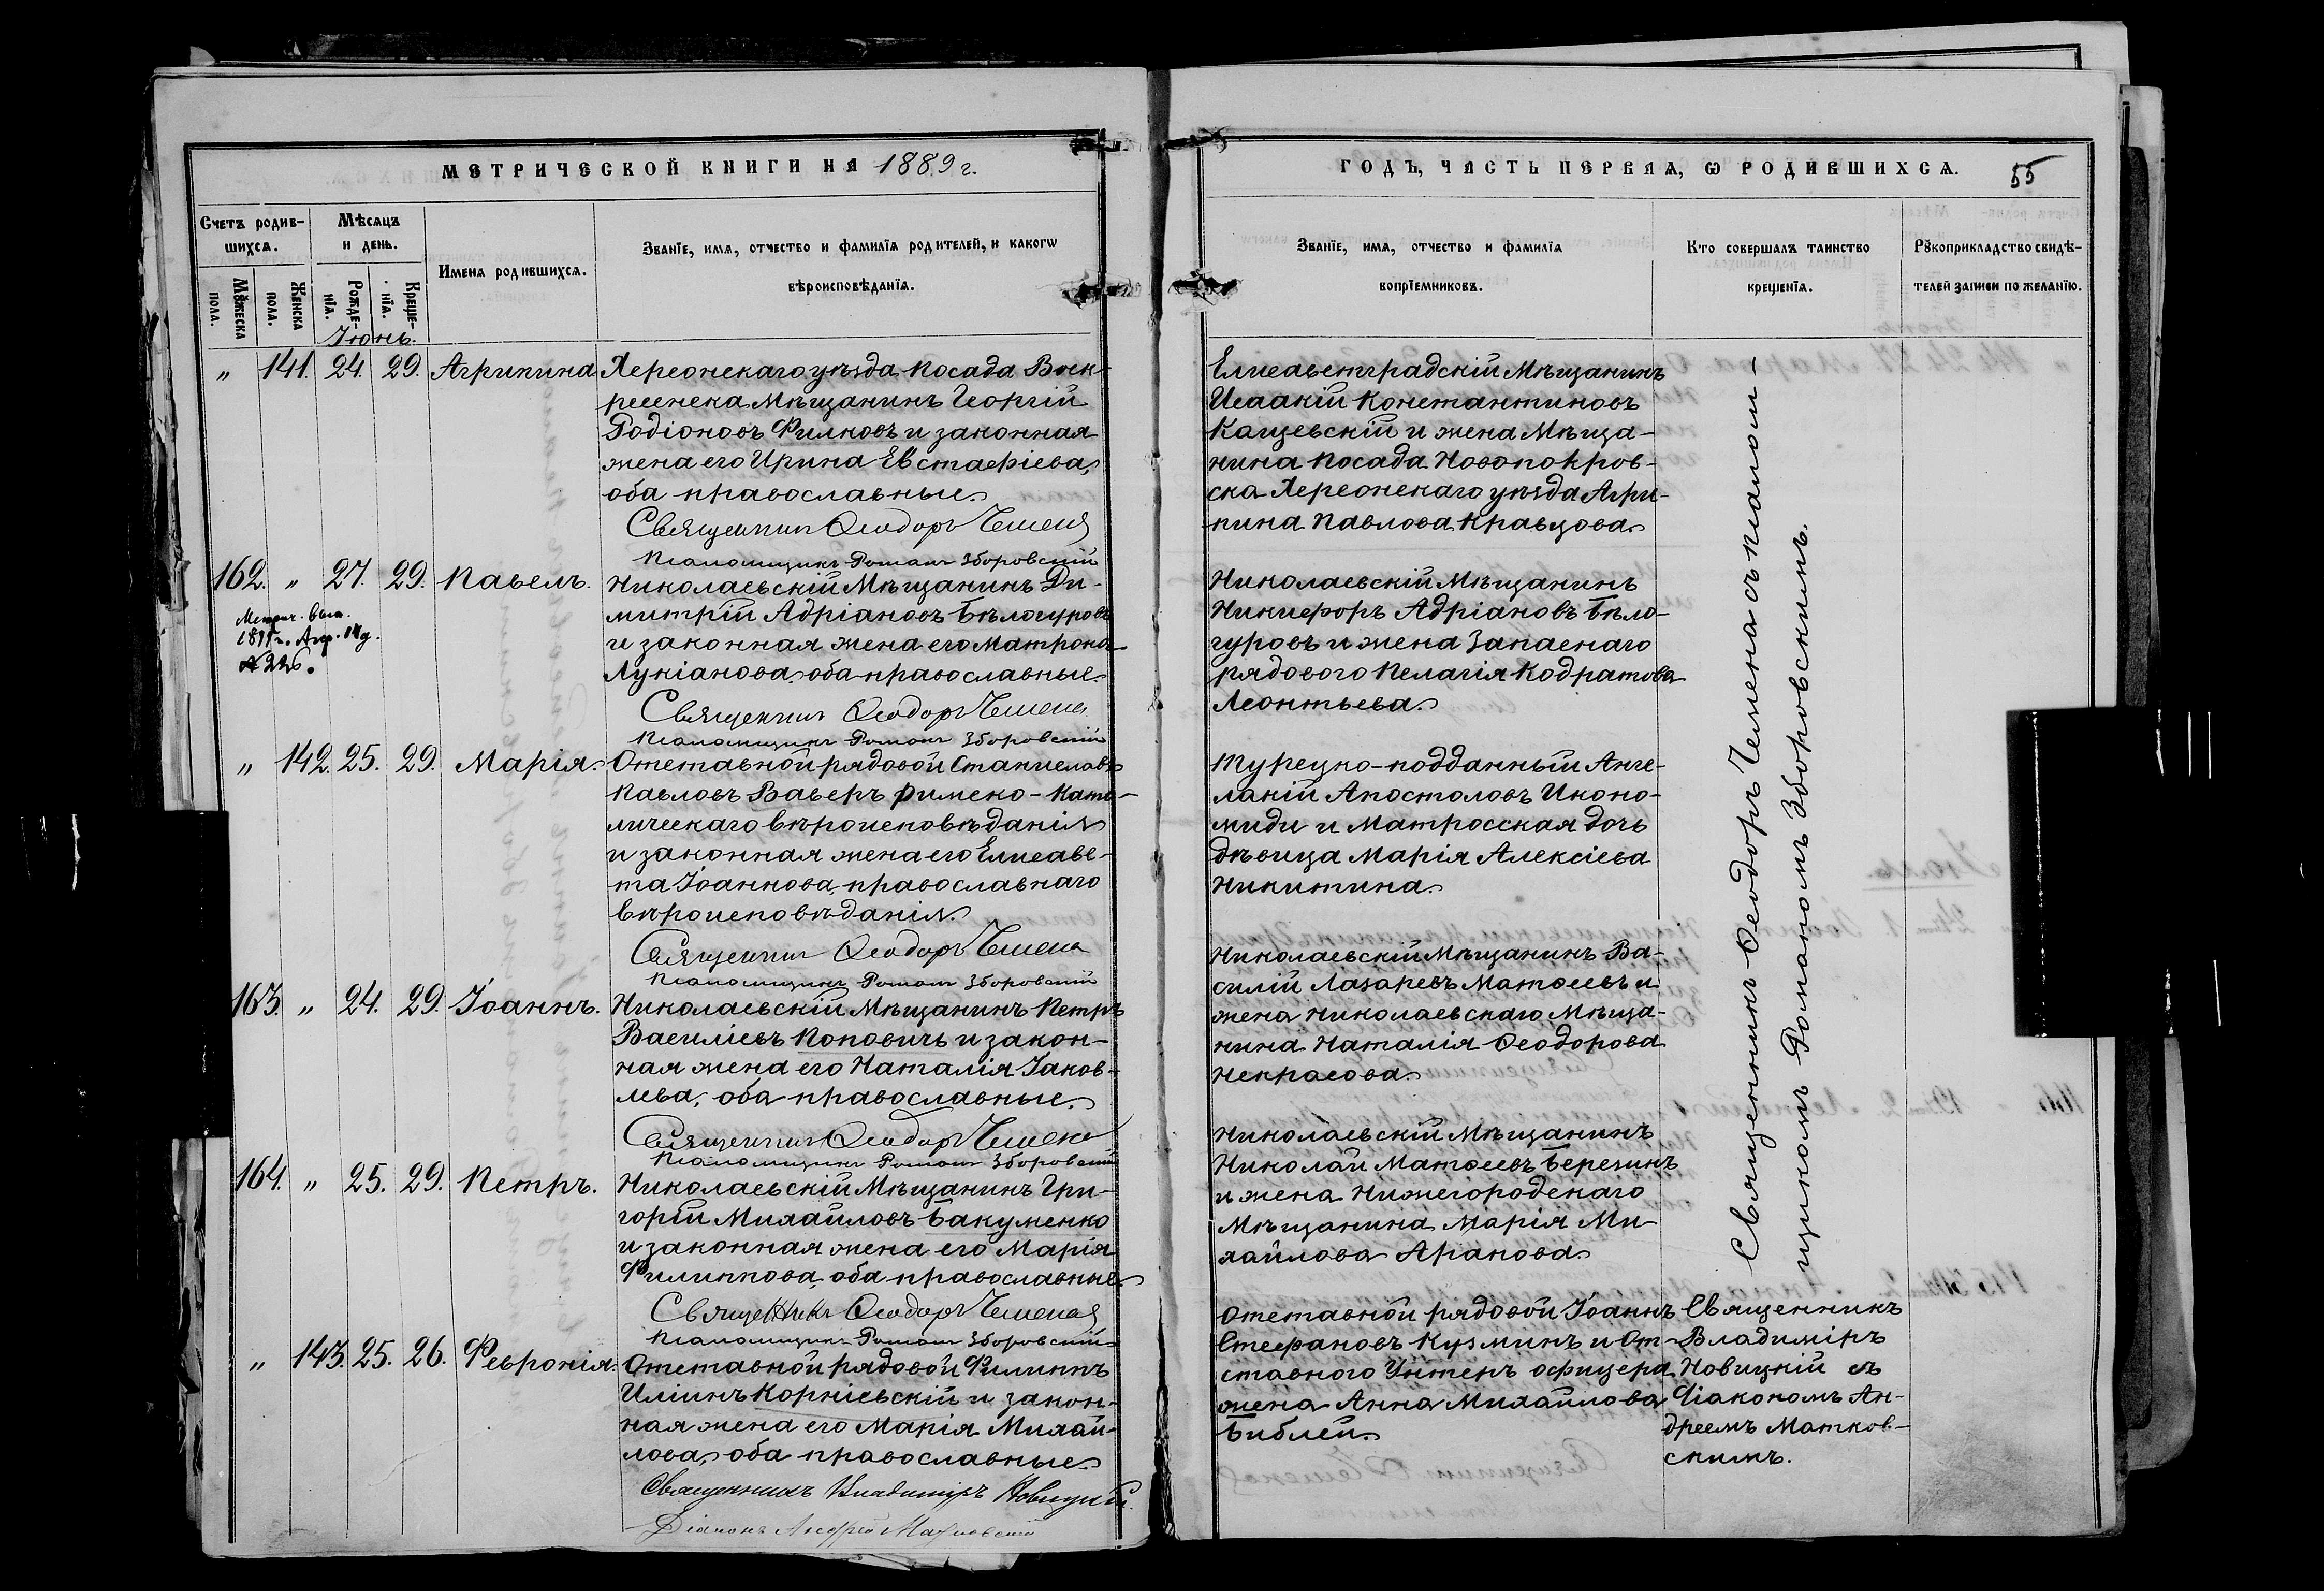 МЕТРИЧЕСКОЙ КНИГИ НА 1889 г.
Счетъ родив-
шихся.
Мѣсяцъ
и день.
Имена родившихся.
Званіе, имя, отчество и фамилія родителей, и какогѡ
вѣроисповѣданія.
Мꙋжеска
пола.
Женска
пола.
Рожде-
нія.
Креще-
нія.
Іюнь.
" 141. 24. 29. Агрипина Херсонскаго уѣзда посада Воск-
ресенска Мѣщанинъ Георгій
Родіоновъ Филковъ и законная
жена его Ирина Евстафіева,
оба православные.
Священник Ѳеодоръ Чемена
Псаломщикъ Романъ Зборовскій
162. " 27. 29. Павелъ. Николаевскій Мѣщанинъ Ди-
митрій Адріановъ Бѣлогуровъ
и законная жена его Матрона
Лукіанова, оба православные.
Метрич. выд.
Священник Ѳеодоръ Чемена
Псаломщикъ Романъ Зборовскій
" 142. 25. 29. Марія. Отставной рядовой Станиславъ
Павловъ Ваверъ римско-като-
лическаго вѣроисповѣданія
и законная жена его Елисаве-
та Іоаннова, православнаго
вѣроисповѣданія.
Священник Ѳеодоръ Чемена
Псаломщикъ Романъ Зборовскій
163. " 24. 29. Іоаннъ. Николаевскій Мѣщанинъ Петръ
Василіевъ Поповичъ и закон-
ная жена его Наталія Іаков-
лева, оба православные.
Священник Ѳеодоръ Чемена
Псаломщикъ Романъ Зборовскій
164. " 25. 29. Петръ. Николаевскій Мѣщанинъ Гри-
горій Михайловъ Бакуменко
и законная жена его Марія
Филиппова, оба православные
Священникъ Ѳеодоръ Чемена
Псаломщикъ Романъ Зборовскій
" 143. 25. 26. Февронія. Отставной рядовой Филиппъ
Иліинъ Корніевскій и закон-
ная жена его Марія Михай-
лова, оба православные.
Священникъ Владиміръ Новицкій.
Діаконъ Андрей Матковскій
ГОДЪ, ЧАСТЬ ПЕРВАЯ, Ѡ РОДИВШИХСЯ.
55
Званіе, имя, отчество и фамилія
воспріемниковъ.
Кто совершалъ таинство
крещенія.
Рꙋкоприкладство свидѣ-
телей записи по желанію.
Елисаветградскій Мѣщанинъ
Исаакій Константиновъ
Кащевскій и жена Мѣща-
нина посада Новопокров-
ска Херсонскаго уѣзда Агри-
пина Павлова Кравцова.
Николаевскій Мѣщанинъ
Никифоръ Адріановъ Бѣло-
гуровъ и жена Запаснаго
рядового Пелагія Кодратова
Леонтьева.
Турецко-подданный Анге-
лакій Апостоловъ Иконо-
миди и Матросская дочь
дѣвица Марія Алексіева
Никитина.
Николаевскій Мѣщанинъ Ва-
силій Лазаревъ Матѳеевъ и
жена Николаевскаго Мѣща-
нина Наталія Ѳеодорова
Некрасова.
Николаевскій Мѣщанинъ
Николай Матѳеевъ Березинъ
и жена Нижегородскаго
Мѣщанина Марія Ми-
хайлова Арапова.
Отставной рядовой Іоаннъ
Стефановъ Кузминъ и От-
ставного Унтеръ офицера
жена Анна Михайлова
Библей.
Священникъ Ѳеодоръ Чемена съ псалом-
щикомъ Романомъ Зборовскимъ.
Священникъ
Владиміръ
Новицкій съ
Діакономъ Ан-
дреемъ Матков-
скимъ.